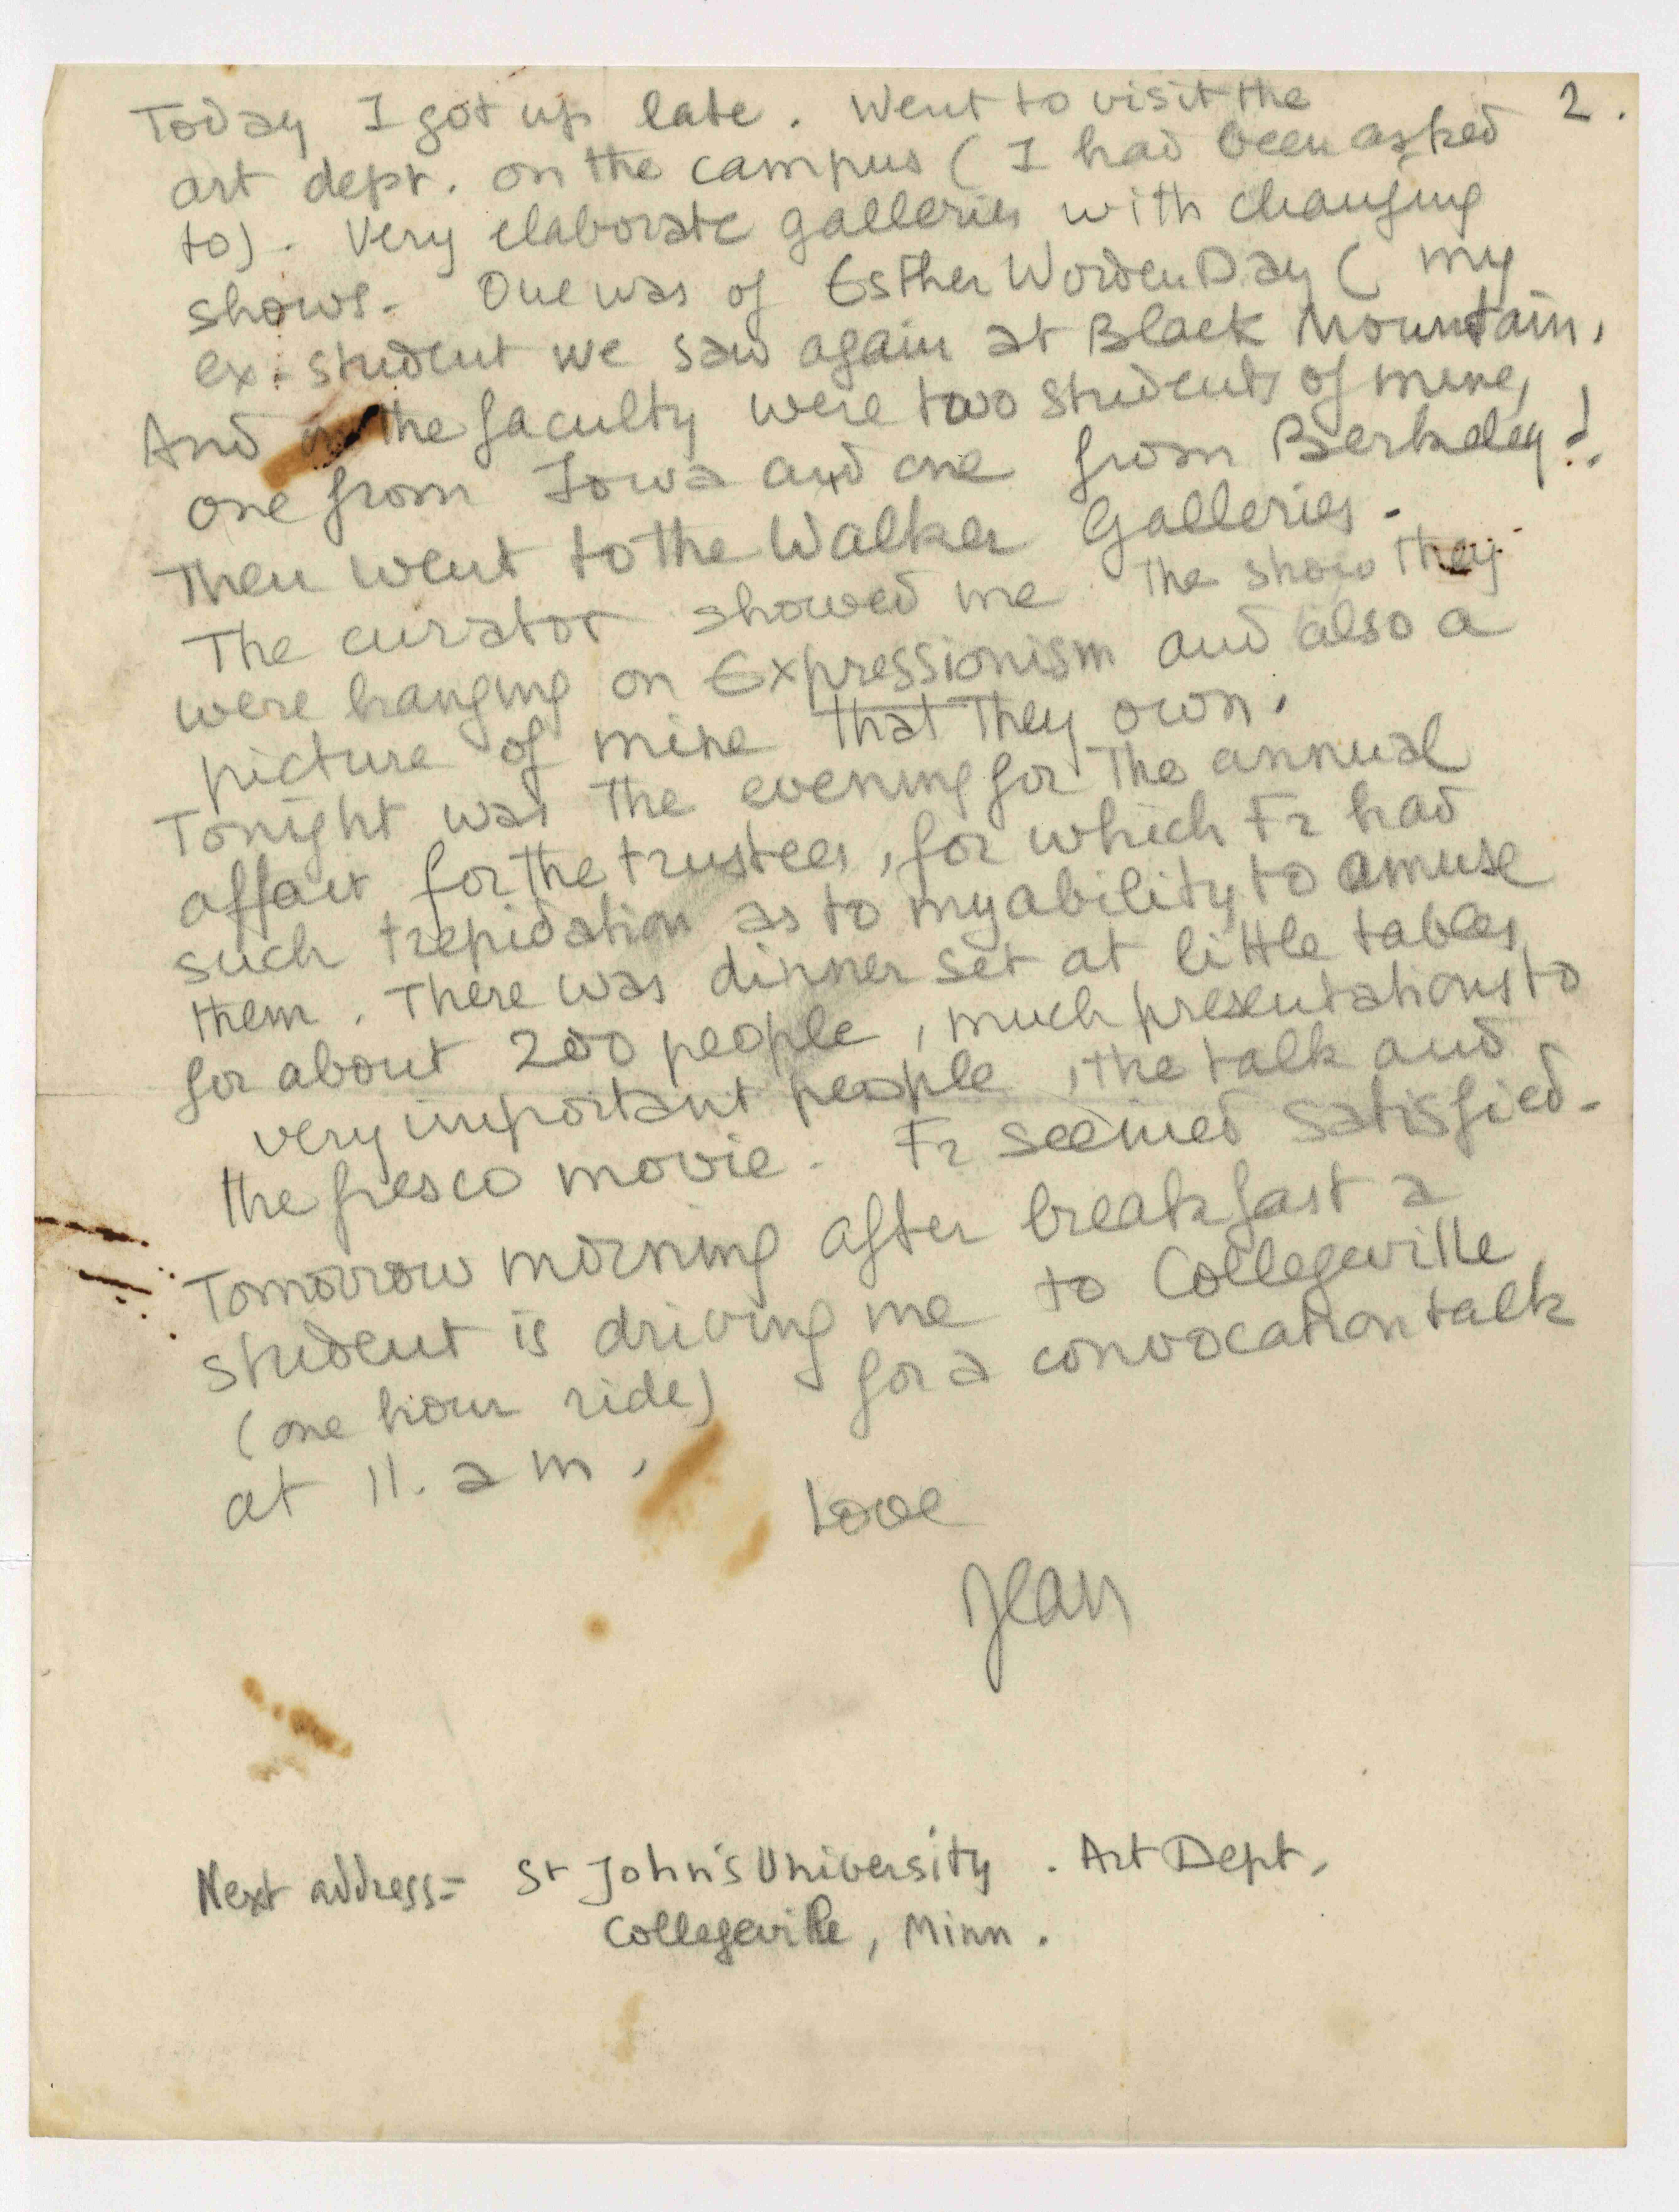 2.
Today I got up late. Went to visit the
art dept. on the campus ( I had been asked
to). Very elaborate galleries with changing
shows. One was of Esther Worden Day ( my
ex-student we saw again at Black Mountain,
And on the faculty were two students of mine,
one from Iowa and one from Berkeley!.
Then went to the Walker Galleries.
The curator showed me the show they
were hanging on Expressionism and also a
picture of mine that they own.
Tonight was the evening for the annual
affair for the trustees, for which Fr had
such trepidation as to my ability to amuse
them. There was dinner set at little tables
for about 200 people, much presentations to
very important people, the talk and
the fresco movie. Fr seemed satisfied.
Tomorrow morning after breakfast a
student is driving me to Collegeville
(one hour ride) for a convocation talk
at 11. a m.
Love
Jean
Next address= St John's University. Art Dept.
Collegeville, Minn.